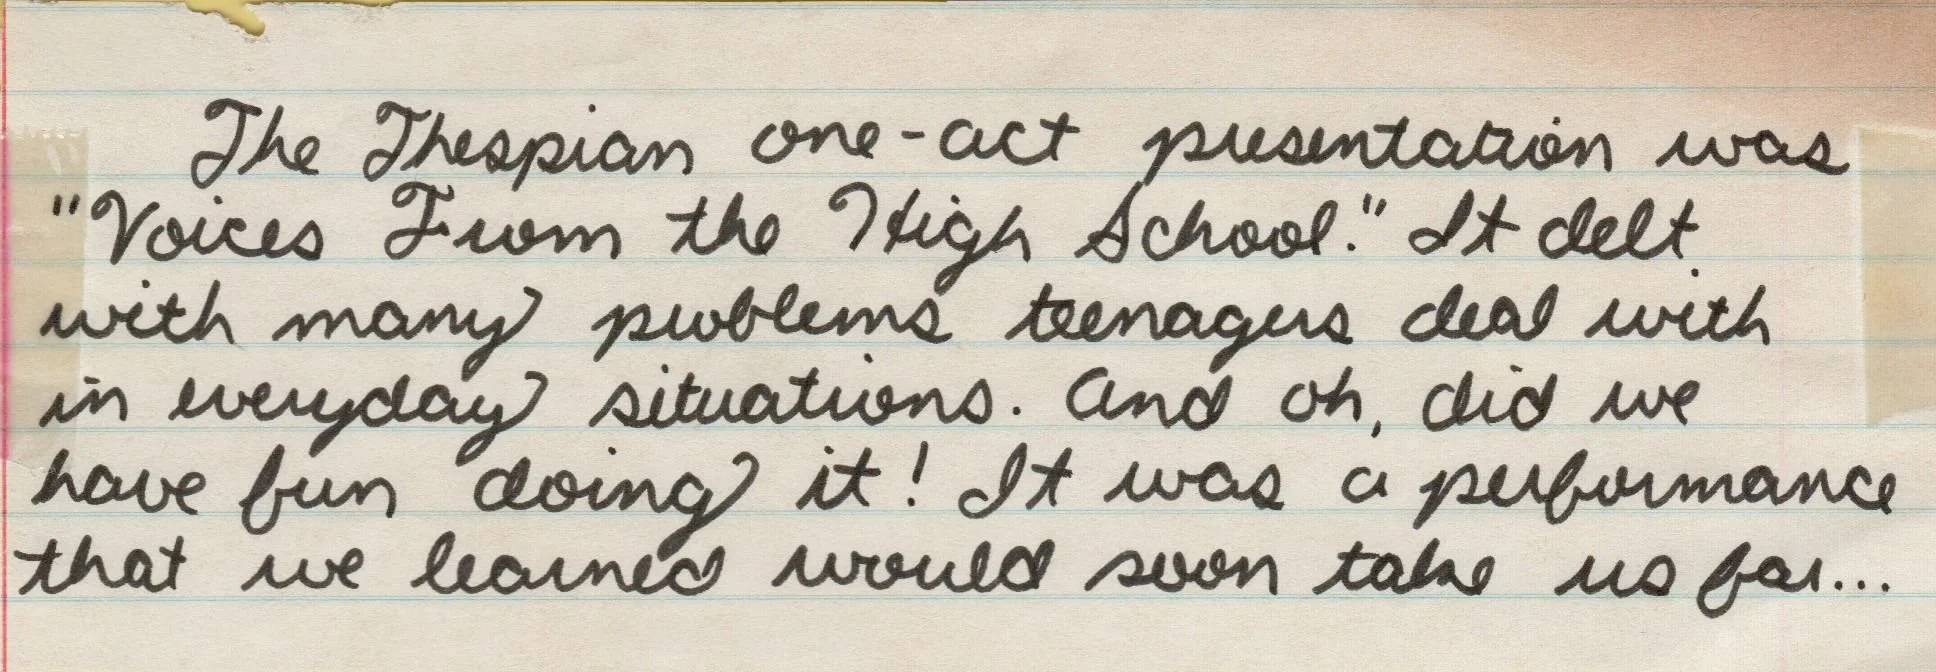 The Thespian one-act presentation was
"Voices From the High School." It delt
with many problems teenagers deal with
in everyday situations. And oh, did we
have fun doing it! It was a performance
that we learned would soon take us far...